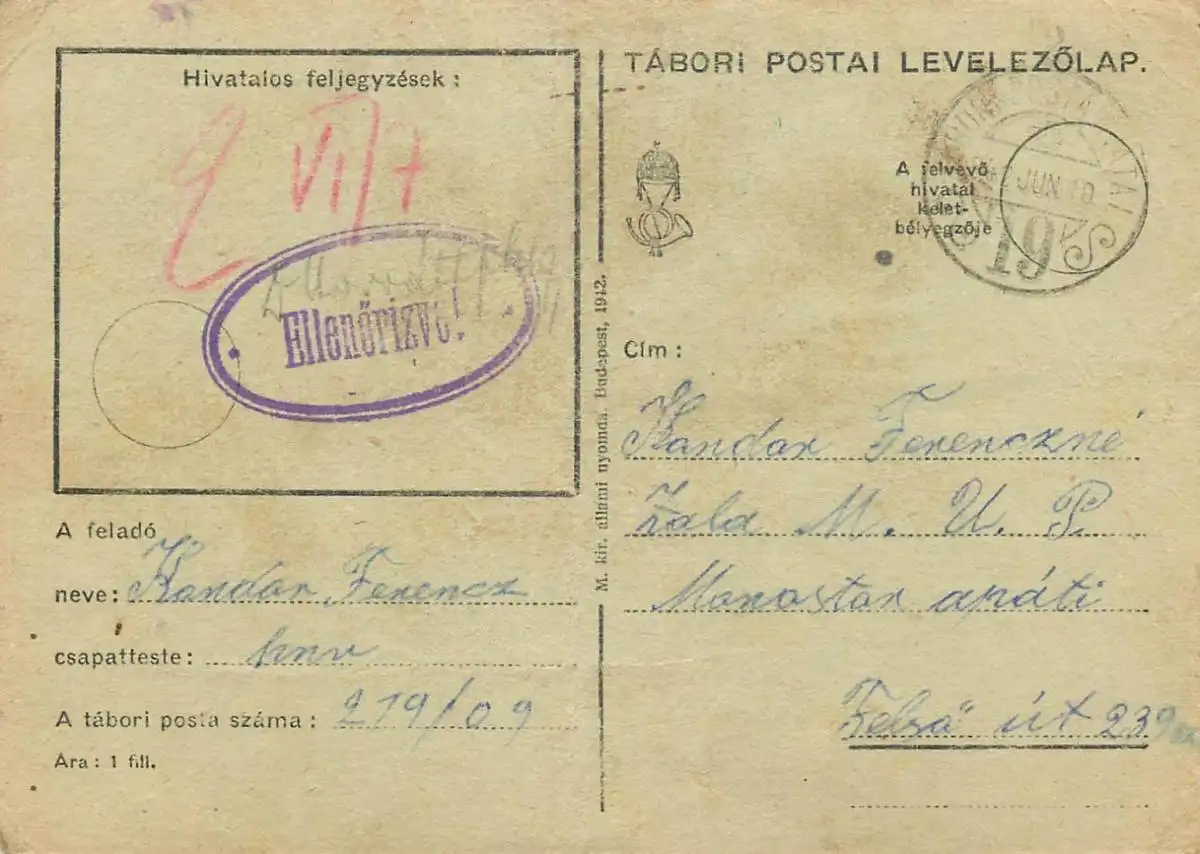 TÁBORI POSTAI LEVELEZŐLAP.
Hivatalos feljegyzések :
VI/7
Ellenőrizve!
A felvevő
hivatal
kelet-
bélyegzője
JUN. 18.
19
M. kir. állami nyomda. Budapest, 1942.
Cím :
Kandar Ferenczné
Zala M. U. P.
Monostor apáti
Felső út 239
A feladó
neve: Kandar Ferencz
csapatteste: hnv
A tábori posta száma : 219/09
Ára : 1 fill.